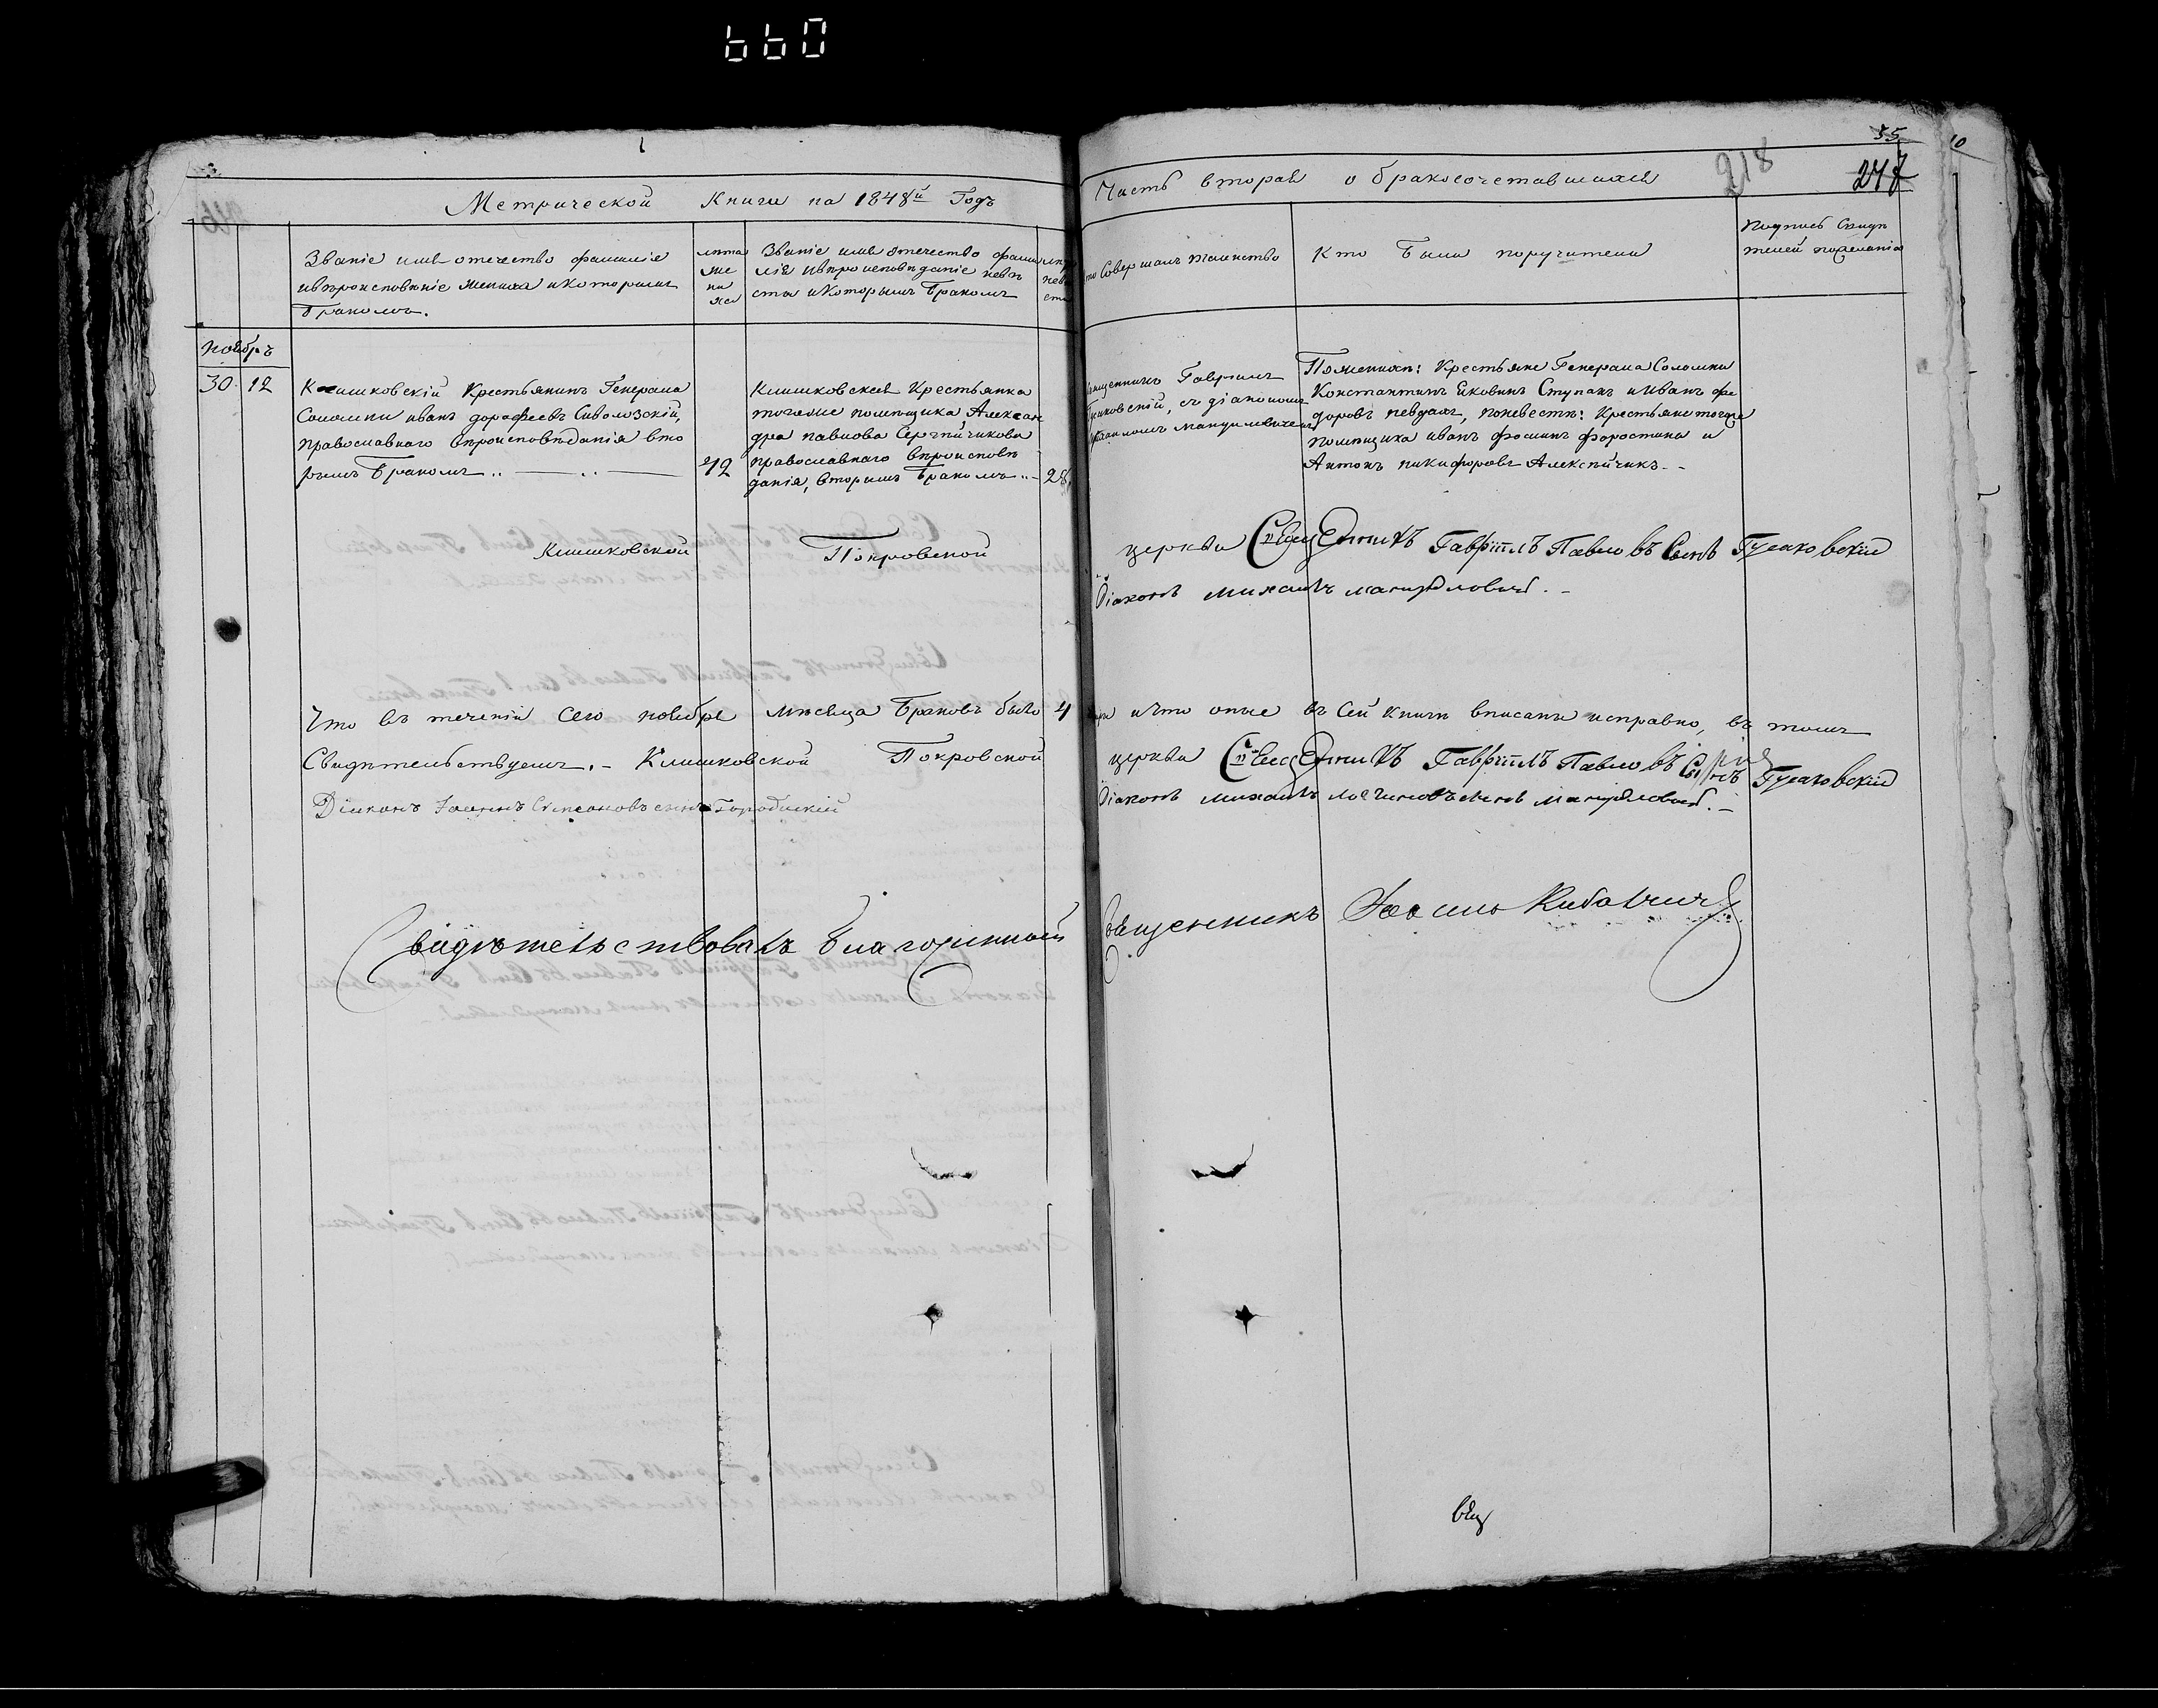 660
55
10
Метрической Книги на 1848й Годъ
Часть вторая о бракосочетавшихся
218
247
Званіе имя отечество фамиліе
ивѣроисповѣніе жениха икоторымъ
бракомъ.
лѣта
же
ни
ха
Званіе имя отечество фами
лія ивѣроисповѣданіе невѣ
сты икоторымъ бракомъ
Совершалъ таинство
Кто были поручители
Подпись Свидѣ
телей пожеланію
ноябрь
30. 12
Клишковскій Крестьянинъ Генерала
Соломки иванъ дорофеевъ Сиволозскій,
православнаго вѣроисповѣданія вто
рымъ бракомъ
42
Клишковская Крестьянка
тогоже помѣщика Алексан
дра павлова Сергѣйчикова
православнаго вѣроисповѣ
данія, вторымъ бракомъ
28
Гавріилъ
съ діакономъ
Пожениху: Крестьяне Генерала Соломки
Константинъ Яковинъ Ступакъ иИванъ фе
доровъ невдахъ, поневестѣ: Крестьяне тогоже
помѣщика иванъ фоминъ форостина и
Антонъ никифоровъ Алексѣйчикъ.
Клишковской Покровской церкви Священникъ Гавріилъ Павловъ Сынъ Гусаковскій
діаконъ михаилъ мануйловичъ.
Что въ теченіи Сего ноября мѣсяца браковъ было 4 ичто оные въ Сей книги вписаны исправно, въ томъ
Свидѣтельствуемъ. Клишковской Покровской церкви Священникъ Гавріилъ Павловъ Сынъ Гусаковскій
Діяконъ Іоаннъ Стефановъ сынъ
діаконъ михаилъ мануйловичъ.
Свидѣтельствовалъ благочинный Священникъ
вѣщ